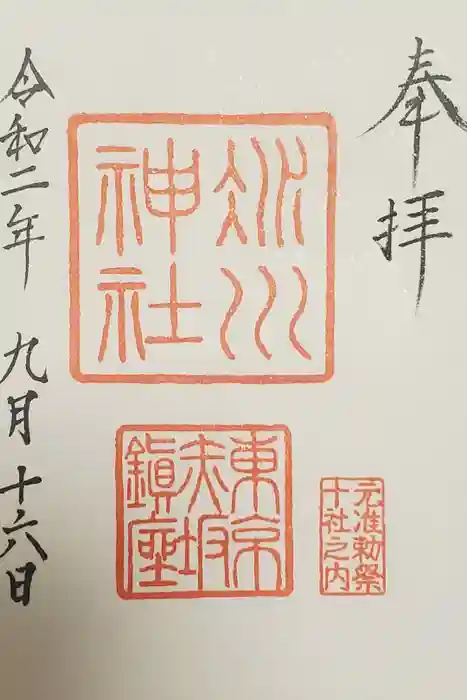 奉拝
氷川
神社
東京
赤坂
鎮座
元准勅祭
十社之内
令和二年 九月 十六日